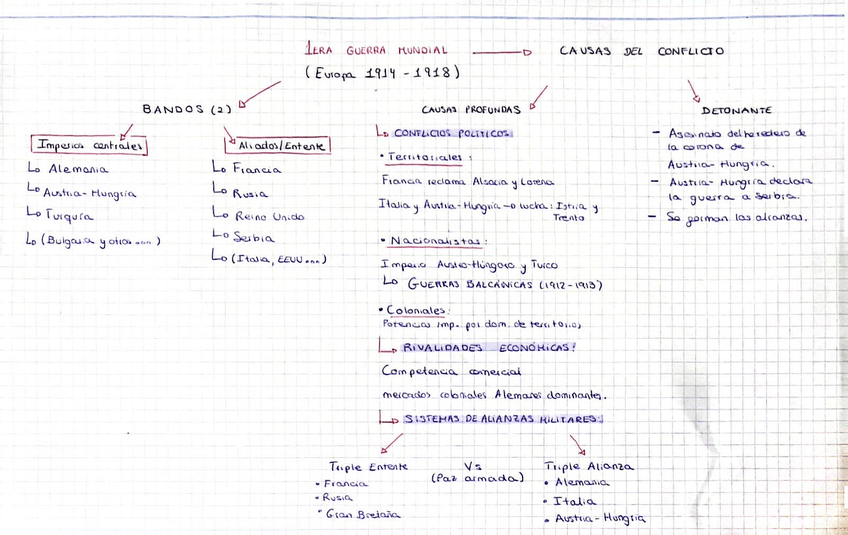 1ERA GUERRA MUNDIAL → CAUSAS DEL CONFLICTO
(Europa 1914 - 1918)
BANDOS (2)
Imperios centrales
Alemania
Austria-Hungría
Turquía
(Bulgaria y otros...)
Aliados/Entente
Francia
Rusia
Reino Unido
Serbia
(Italia, EEUU...)
CAUSAS PROFUNDAS
CONFLICTOS POLITICOS:
• Territoriales:
Francia reclama Alsacia y Lorena
Italia y Austria-Hungría → lucha: Istria y
Trento
• Nacionalistas:
Imperio Austro-Húngaro y Turco
GUERRAS BALCÁNICAS (1912-1913)
• Coloniales:
Potencias imp. por dom. de territorios
RIVALIDADES ECONÓMICAS:
Competencia comercial
mercados coloniales Alemanes dominantes.
SISTEMAS DE ALIANZAS MILITARES:
Triple Entente
• Francia
• Rusia
• Gran Bretaña
Vs
(Paz armada)
Triple Alianza
• Alemania
• Italia
• Austria-Hungría
DETONANTE
- Asesinato del heredero de
la corona de
Austria-Hungría.
- Austria-Hungría declara
la guerra a Serbia.
- Se forman las alianzas.